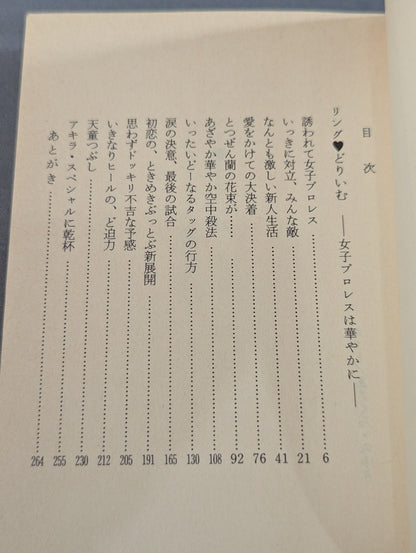 目次
リング♥どりいむ ――女子プロレスは華やかに――
誘われて女子プロレス……6
いっきに対立、みんな敵……21
なんとも激しい新人生活……41
愛をかけての大決着……76
とつぜん蘭の花束が……92
あざやか華やか空中殺法……108
いったいどーなるタッグの行方……130
涙の決意、最後の試合……165
初恋の、ときめきぶっとぶ新展開……191
思わずドッキリ不吉な予感……205
いきなりヒールの、ど迫力……212
天童つぶし……230
アキラ・スペシャルに乾杯……255
あとがき……264